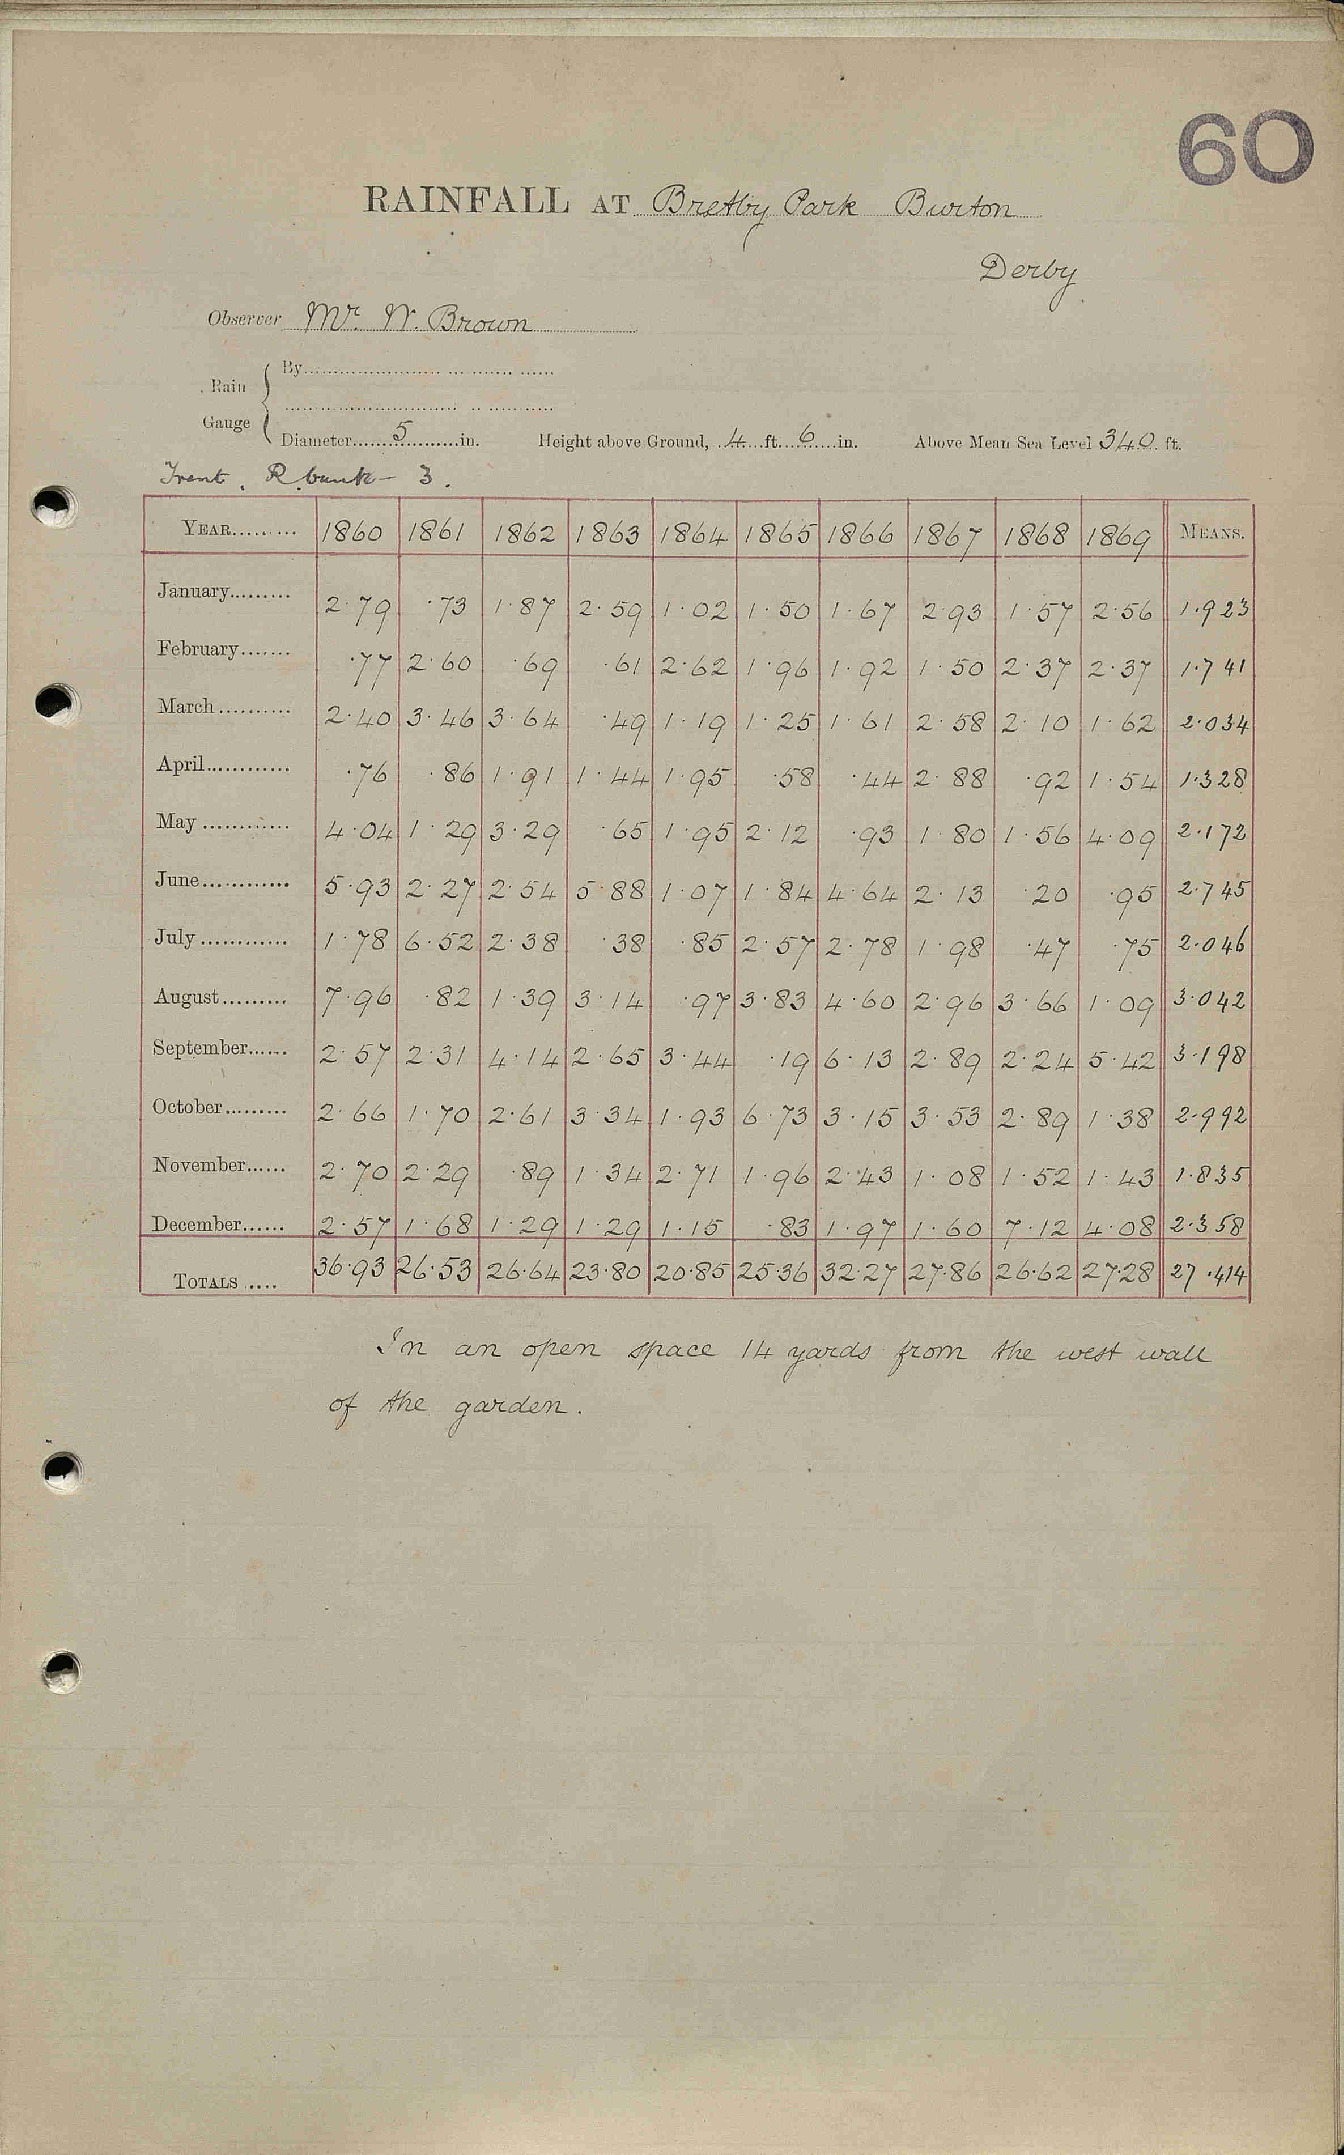 60
RAINFALL AT Bretby Park Burton
Derby
Observer Mr. W. Brown
Rain Gauge { By
Diameter 5 in. Height above Ground, 4 ft. 6 in. Above Mean Sea Level 340 ft.
Trent. R bank - 3.
YEAR 1860 1861 1862 1863 1864 1865 1866 1867 1868 1869 MEANS.
January 2.79 .73 1.87 2.59 1.02 1.50 1.67 2.93 1.57 2.56 1.923
February .77 2.60 .69 .61 2.62 1.96 1.92 1.50 2.37 2.37 1.741
March 2.40 3.46 3.64 .49 1.19 1.25 1.61 2.58 2.10 1.62 2.034
April .76 .86 1.91 1.44 1.95 .58 .44 2.88 .92 1.54 1.328
May 4.04 1.29 3.29 .65 1.95 2.12 .93 1.80 1.56 4.09 2.172
June 5.93 2.27 2.54 5.88 1.07 1.84 4.64 2.13 .20 .95 2.745
July 1.78 6.52 2.38 .38 .85 2.57 2.78 1.98 .47 .75 2.046
August 7.96 .82 1.39 3.14 .97 3.83 4.60 2.96 3.66 1.09 3.042
September 2.57 2.31 4.14 2.65 3.44 .19 6.13 2.89 2.24 5.42 3.198
October 2.66 1.70 2.61 3.34 1.93 6.73 3.15 3.53 2.89 1.38 2.992
November 2.70 2.29 .89 1.34 2.71 1.96 2.43 1.08 1.52 1.43 1.835
December 2.57 1.68 1.29 1.29 1.15 .83 1.97 1.60 7.12 4.08 2.358
TOTALS 36.93 26.53 26.64 23.80 20.85 25.36 32.27 27.86 26.62 27.28 27.414
In an open space 14 yards from the west wall
of the garden.